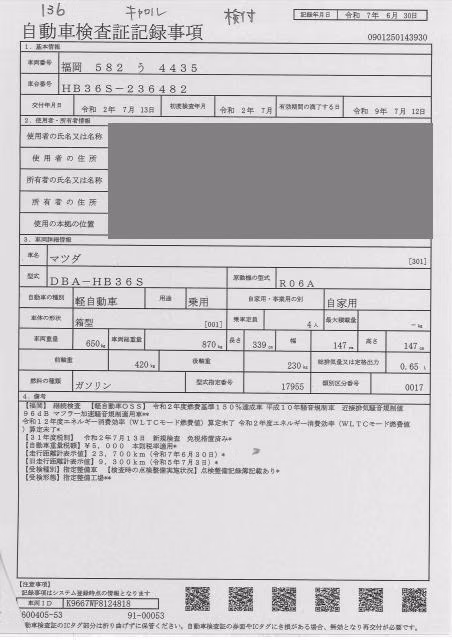 136 キャロル 検付
記録年月日 令和 7年 6月 30日
自動車検査証記録事項 0901250143930
1. 基本情報
車両番号 福岡 582 う 4435
車台番号 HB36S-236482
交付年月日 令和 2年 7月 13日 初度検査年月 令和 2年 7月 有効期間の満了する日 令和 9年 7月 12日
2. 使用者・所有者情報
使用者の氏名又は名称
使用者の住所
所有者の氏名又は名称
所有者の住所
使用の本拠の位置
3. 車両詳細情報
車名 マツダ [301]
型式 DBA-HB36S 原動機の型式 R06A
自動車の種別 軽自動車 用途 乗用 自家用・事業用の別 自家用
車体の形状 箱型 [001] 乗車定員 4人 最大積載量 -kg
車両重量 650kg 車両総重量 870kg 長さ 339cm 幅 147cm 高さ 147cm
前軸重 420kg 後軸重 230kg 総排気量又は定格出力 0.65 L
燃料の種類 ガソリン 型式指定番号 17955 類別区分番号 0017
4. 備考
【福岡】 継続検査 【軽自動車OSS】 令和2年度燃費基準150%達成車 平成10年騒音規制車 近接排気騒音規制値
96dB マフラー加速騒音規制適用車**
令和12年度エネルギー消費効率(WLTCモード燃費値)算定未了 令和2年度エネルギー消費効率(WLTCモード燃費値
)算定未了*
【31年度税制】 令和2年7月13日 新規検査 免税措置済み*
【自動車重量税額】¥5,000 本則税率適用*
【走行距離計表示値】23,700km(令和7年6月30日)*
【旧走行距離計表示値】9,300km(令和5年7月3日)*
【受検種別】指定整備車 【検査時の点検整備実施状況】点検整備記録簿記載あり*
【受検形態】指定整備工場**
【注意事項】
記録事項はシステム登録時点の情報となります
車両ID K9667WF8124818
600405-53 91-00053
自動車検査証のICタグ部分は折り曲げずに保管ください。自動車検査証の券面やICタグにき損がある場合、無効となり再交付が必要です。